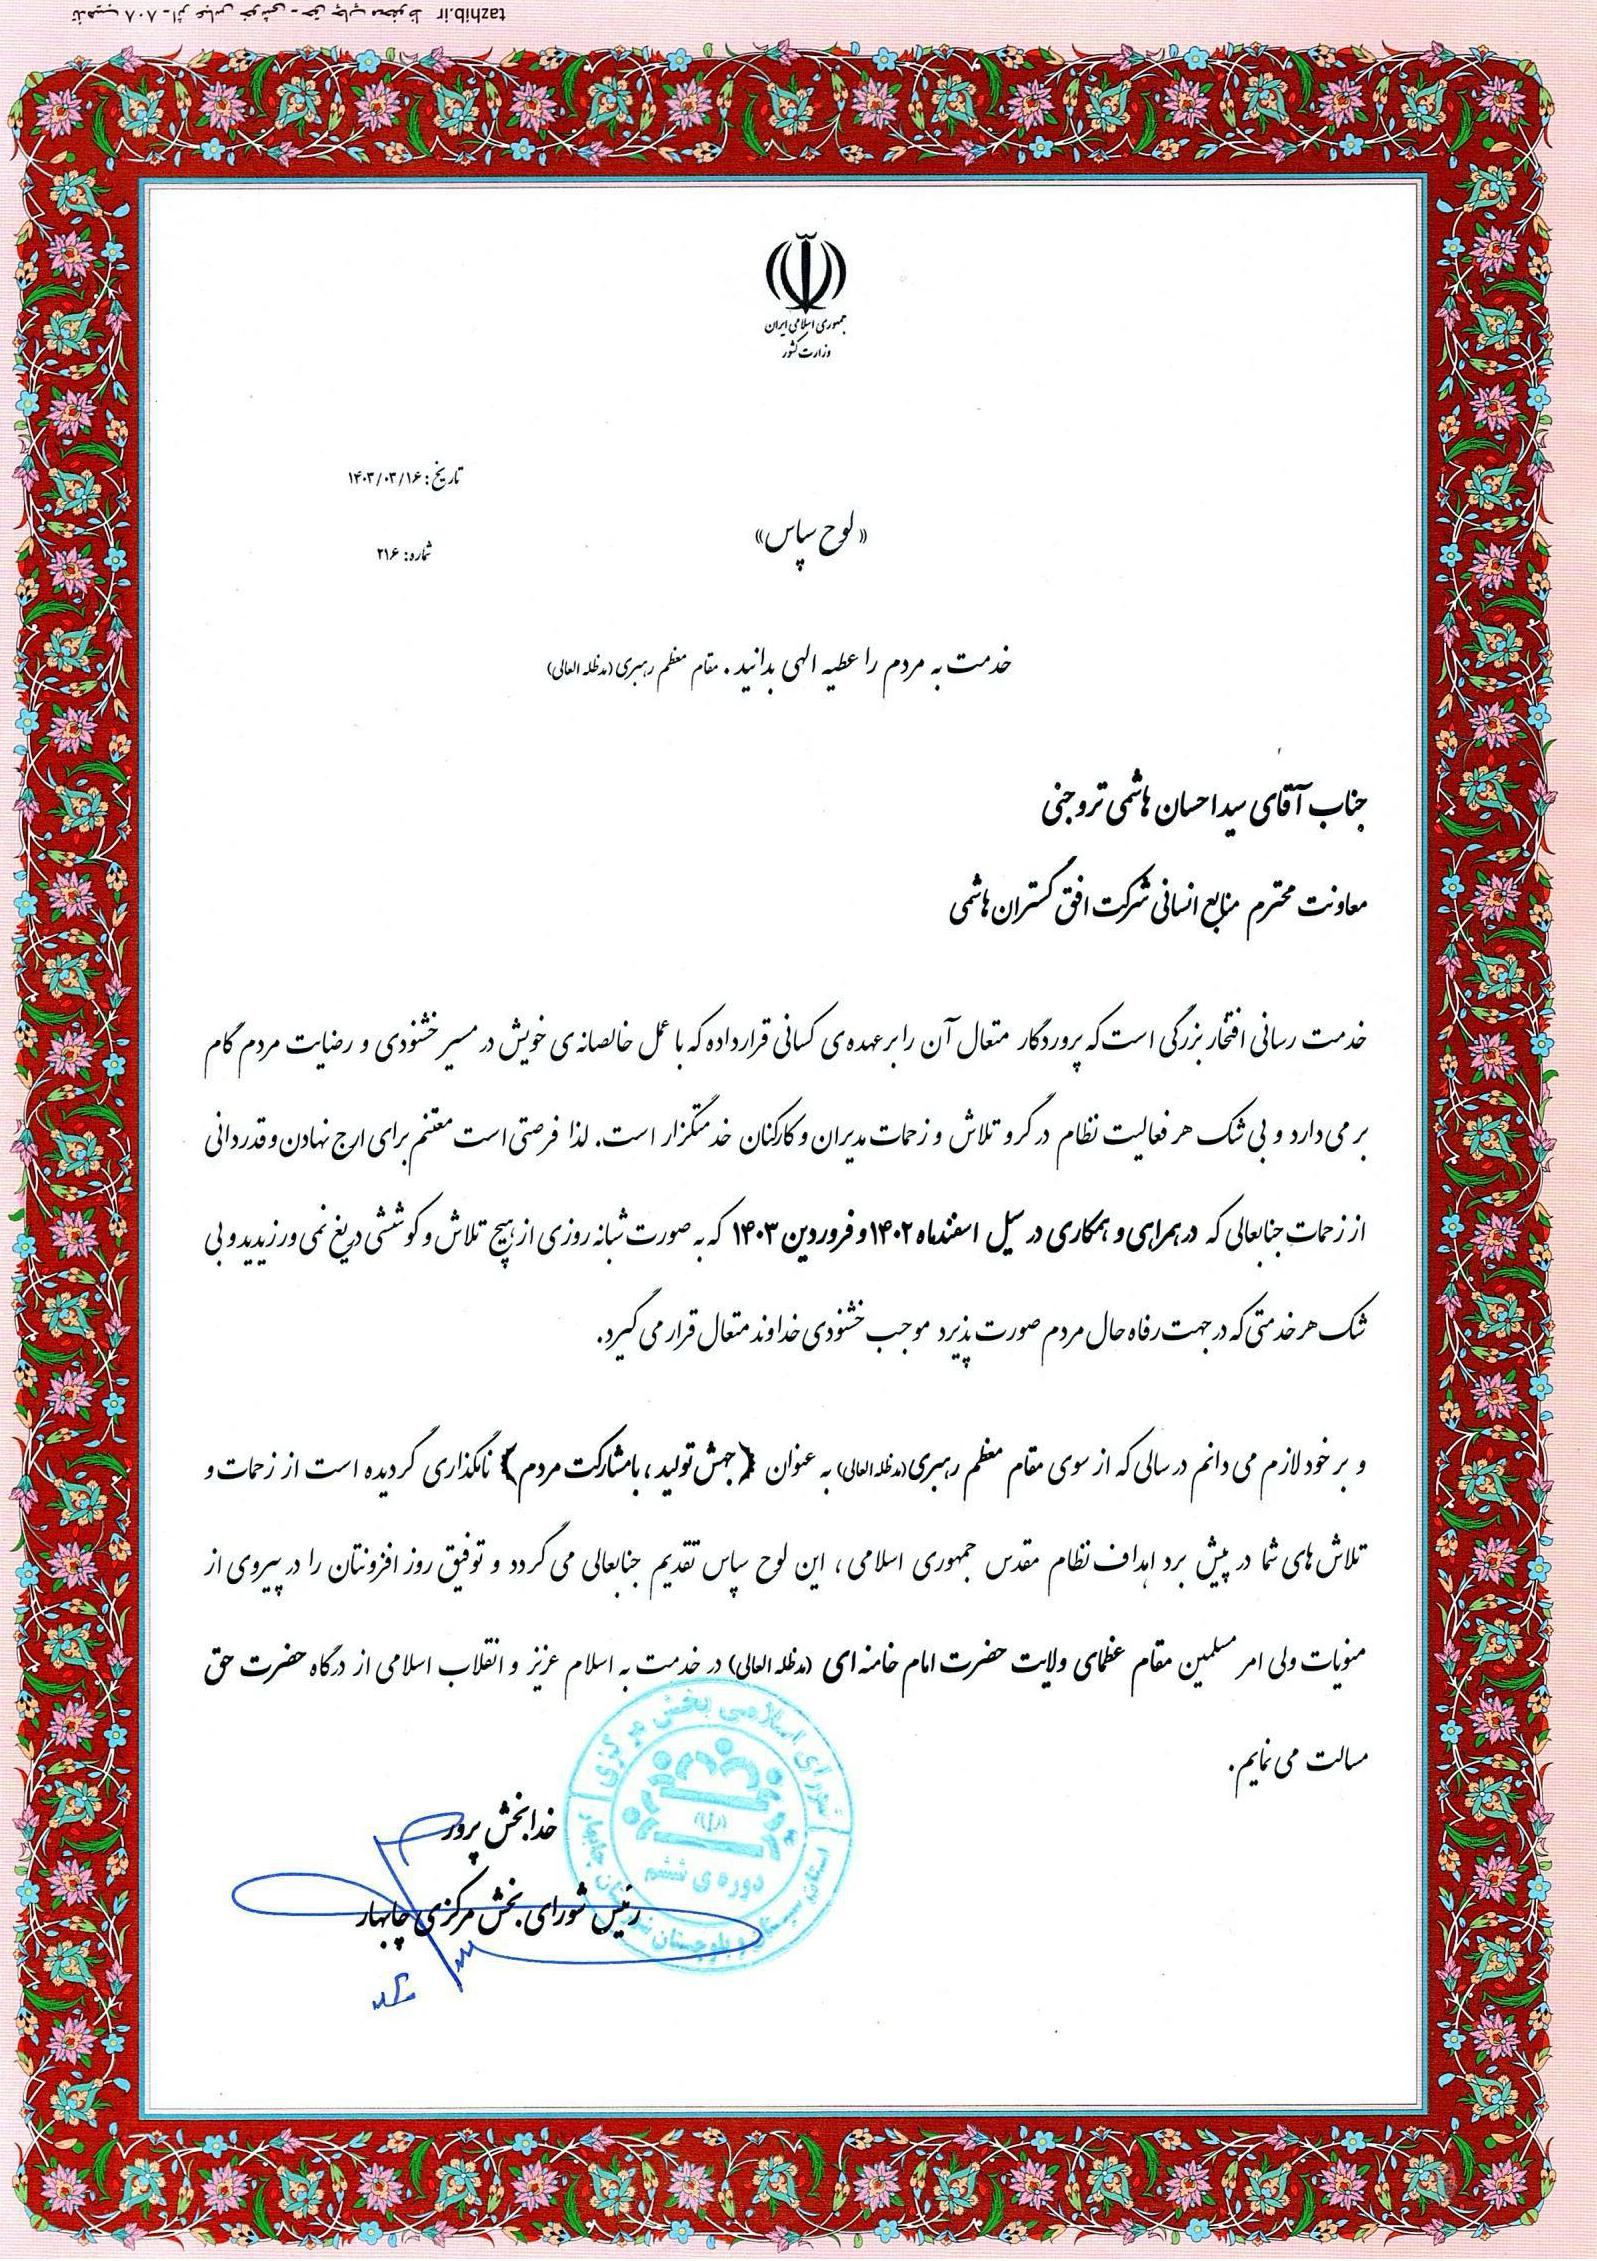 tazhib.ir
جمهوری اسلامی ایران
وزارت کشور
تاریخ: ۱۴۰۳/۰۳/۱۶
« لوح سپاس»
شماره: ۲۱۶
خدمت به مردم را عطیه الهی بدانید. مقام معظم رهبری (مدظله العالی)
جناب آقای سید احسان هاشمی تروجنی
معاونت محترم منابع انسانی شرکت افق گستران هاشمی
خدمت رسانی افتخار بزرگی است که پروردگار متعال آن را بر عهده ی کسانی قرار داده که با عمل خالصانه ی خویش در مسیر خشنودی و رضایت مردم گام
بر می دارد و بی شک هر فعالیت نظام در گرو تلاش و زحمات مدیران و کارکنان خدمتگزار است. لذا فرصتی است مغتنم برای ارج نهادن و قدردانی
از زحمات جنابعالی که در همراهی و همکاری در سیل اسفندماه ۱۴۰۲ و فروردین ۱۴۰۳ که به صورت شبانه روزی از هیچ تلاش و کوششی دریغ نمی ورزیدید و بی
شک هر خدمتی که در جهت رفاه حال مردم صورت پذیرد موجب خشنودی خداوند متعال قرار می گیرد.
و بر خود لازم می دانم در سالی که از سوی مقام معظم رهبری (مدظله العالی) به عنوان (جهش تولید، با مشارکت مردم) نامگذاری گردیده است از زحمات و
تلاش های شما در پیش برد اهداف نظام مقدس جمهوری اسلامی، این لوح سپاس تقدیم جنابعالی می گردد و توفیق روز افزونتان را در پیروی از
منویات ولی امر مسلمین مقام عظمای ولایت حضرت امام خامنه ای (مدظله العالی) در خدمت به اسلام عزیز و انقلاب اسلامی از درگاه حضرت حق
مسالت می نمایم.
خدابخش پرور
رئیس شورای بخش مرکزی چابهار
شورای اسلامی بخش مرکزی
استان سیستان و بلوچستان شهرستان چابهار
دوره ی ششم